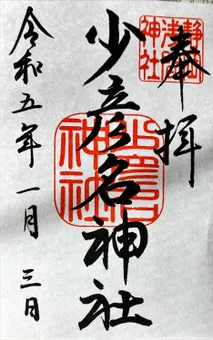 奉拝
静岡浅間神社
少彦名神社
令和五年一月三日